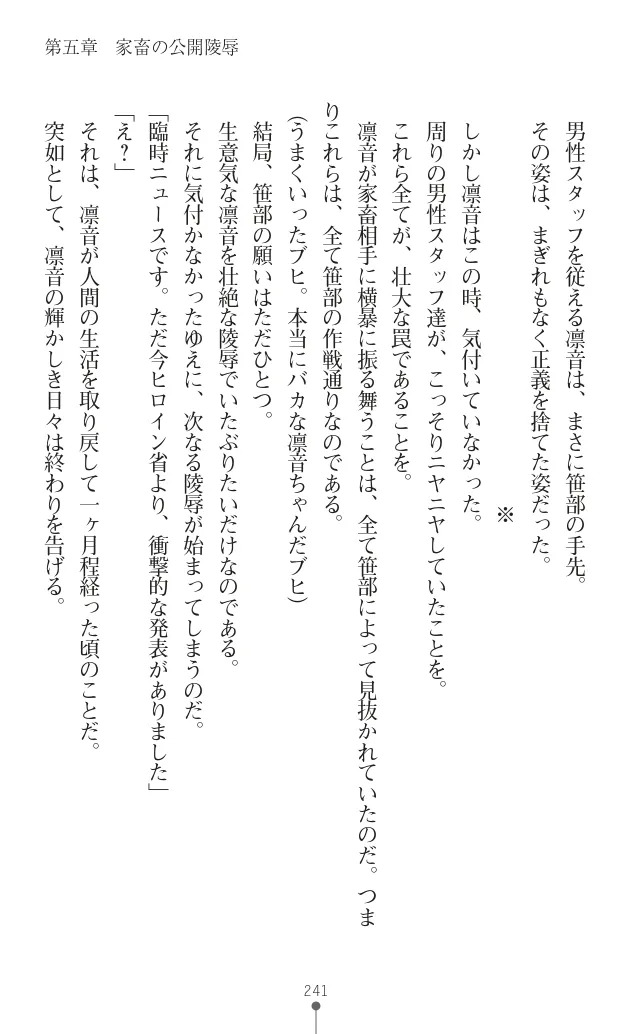 第五章　家畜の公開陵辱
男性スタッフを従える凛音は、まさに笹部の手先。
その姿は、まぎれもなく正義を捨てた姿だった。
※
しかし凛音はこの時、気付いていなかった。
周りの男性スタッフ達が、こっそりニヤニヤしていたことを。
これら全てが、壮大な罠であることを。
凛音が家畜相手に横暴に振る舞うことは、全て笹部によって見抜かれていたのだ。つま
りこれらは、全て笹部の作戦通りなのである。
（うまくいったブヒ。本当にバカな凛音ちゃんだブヒ）
結局、笹部の願いはただひとつ。
生意気な凛音を壮絶な陵辱でいたぶりたいだけなのである。
それに気付かなかったゆえに、次なる陵辱が始まってしまうのだ。
「臨時ニュースです。ただ今ヒロイン省より、衝撃的な発表がありました」
「え？」
それは、凛音が人間の生活を取り戻して一ヶ月程経った頃のことだ。
突如として、凛音の輝かしき日々は終わりを告げる。
241